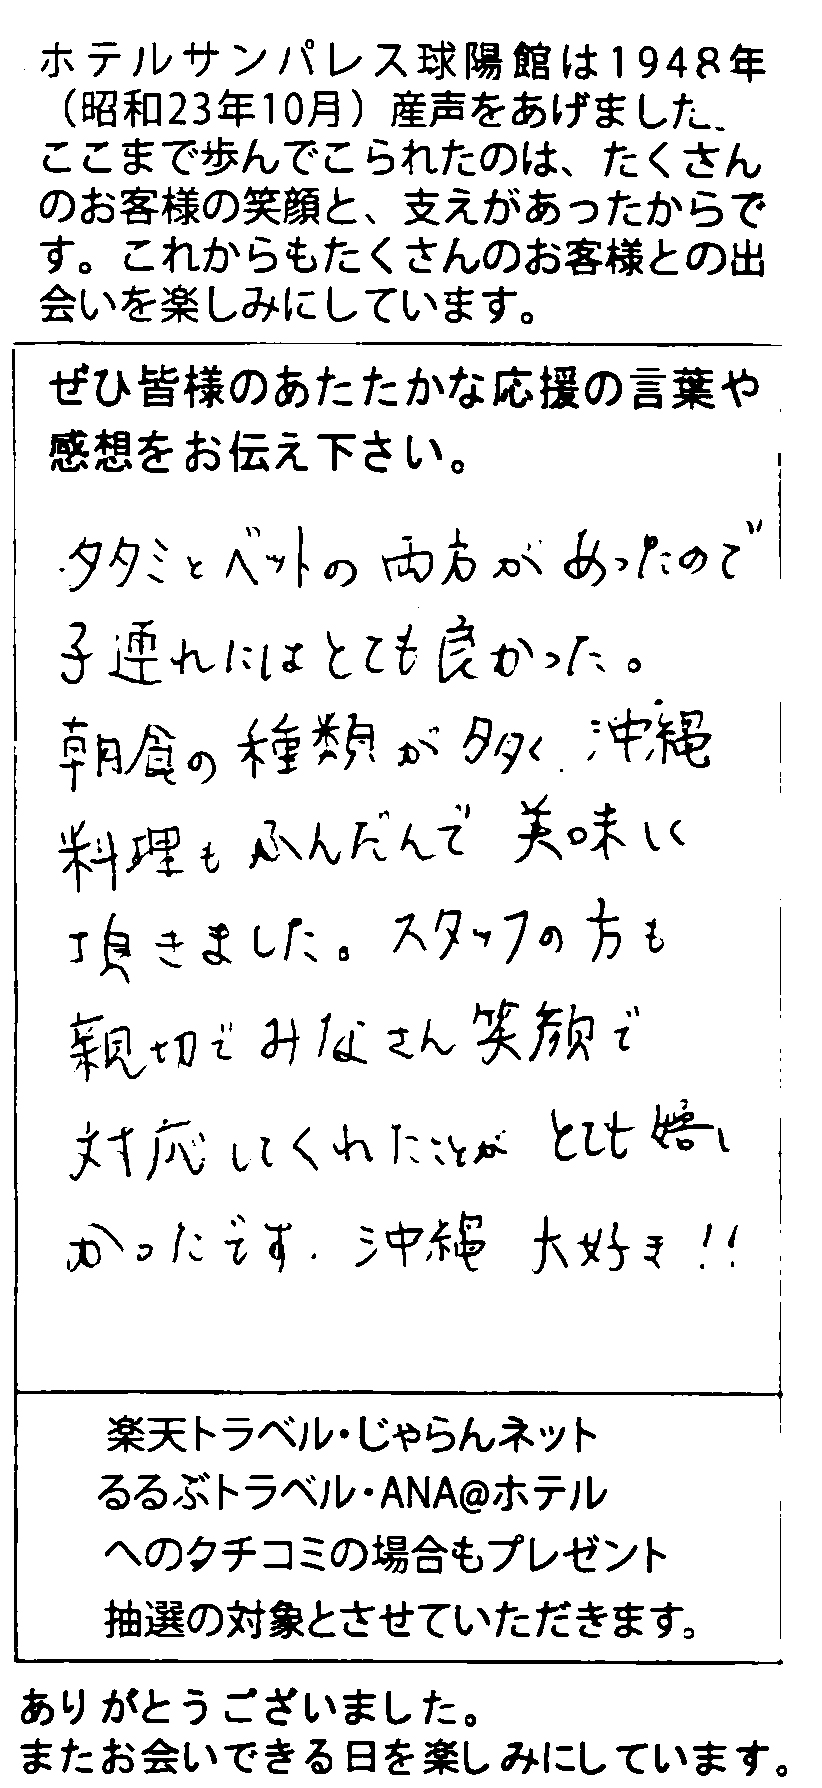 ホテルサンパレス球陽館は1948年
（昭和23年10月）産声をあげました。
ここまで歩んでこられたのは、たくさん
のお客様の笑顔と、支えがあったからで
す。これからもたくさんのお客様との出
会いを楽しみにしています。
ぜひ皆様のあたたかな応援の言葉や
感想をお伝え下さい。
タタミとベットの両方があったので
子連れにはとても良かった。
朝食の種類が多く、沖縄
料理もふんだんで美味しく
頂きました。スタッフの方も
親切でみなさん笑顔で
対応してくれたことがとても嬉し
かったです。沖縄大好き!!
楽天トラベル・じゃらんネット
るるぶトラベル・ANA@ホテル
へのクチコミの場合もプレゼント
抽選の対象とさせていただきます。
ありがとうございました。
またお会いできる日を楽しみにしています。